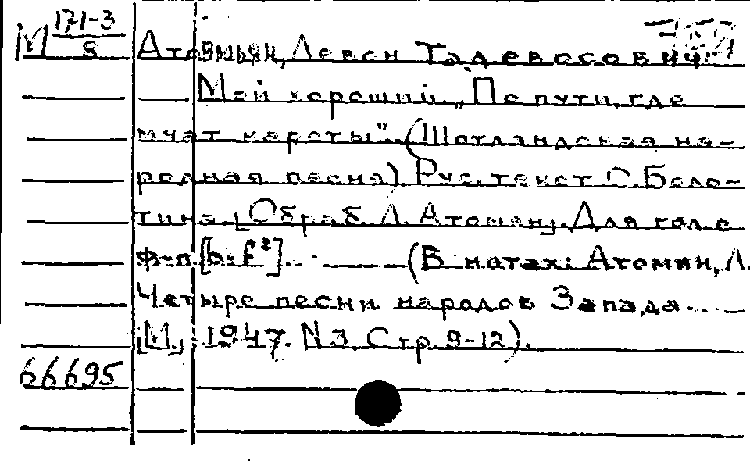 М 171-3
8
Атовмян, Левон Тадевосович.
Мой хороший. "По пути, где
мчат кареты". (Шотландская на-
родная песня). Рус. текст С. Боло-
тина. [Обраб. Л. Атовмян]. Для гол. с
ф-п. [b-f²]. (В нотах: Атовмян, Л.
Четыре песни народов Запада.
[М.] 1947. N 3. Стр. 9-12).
66695